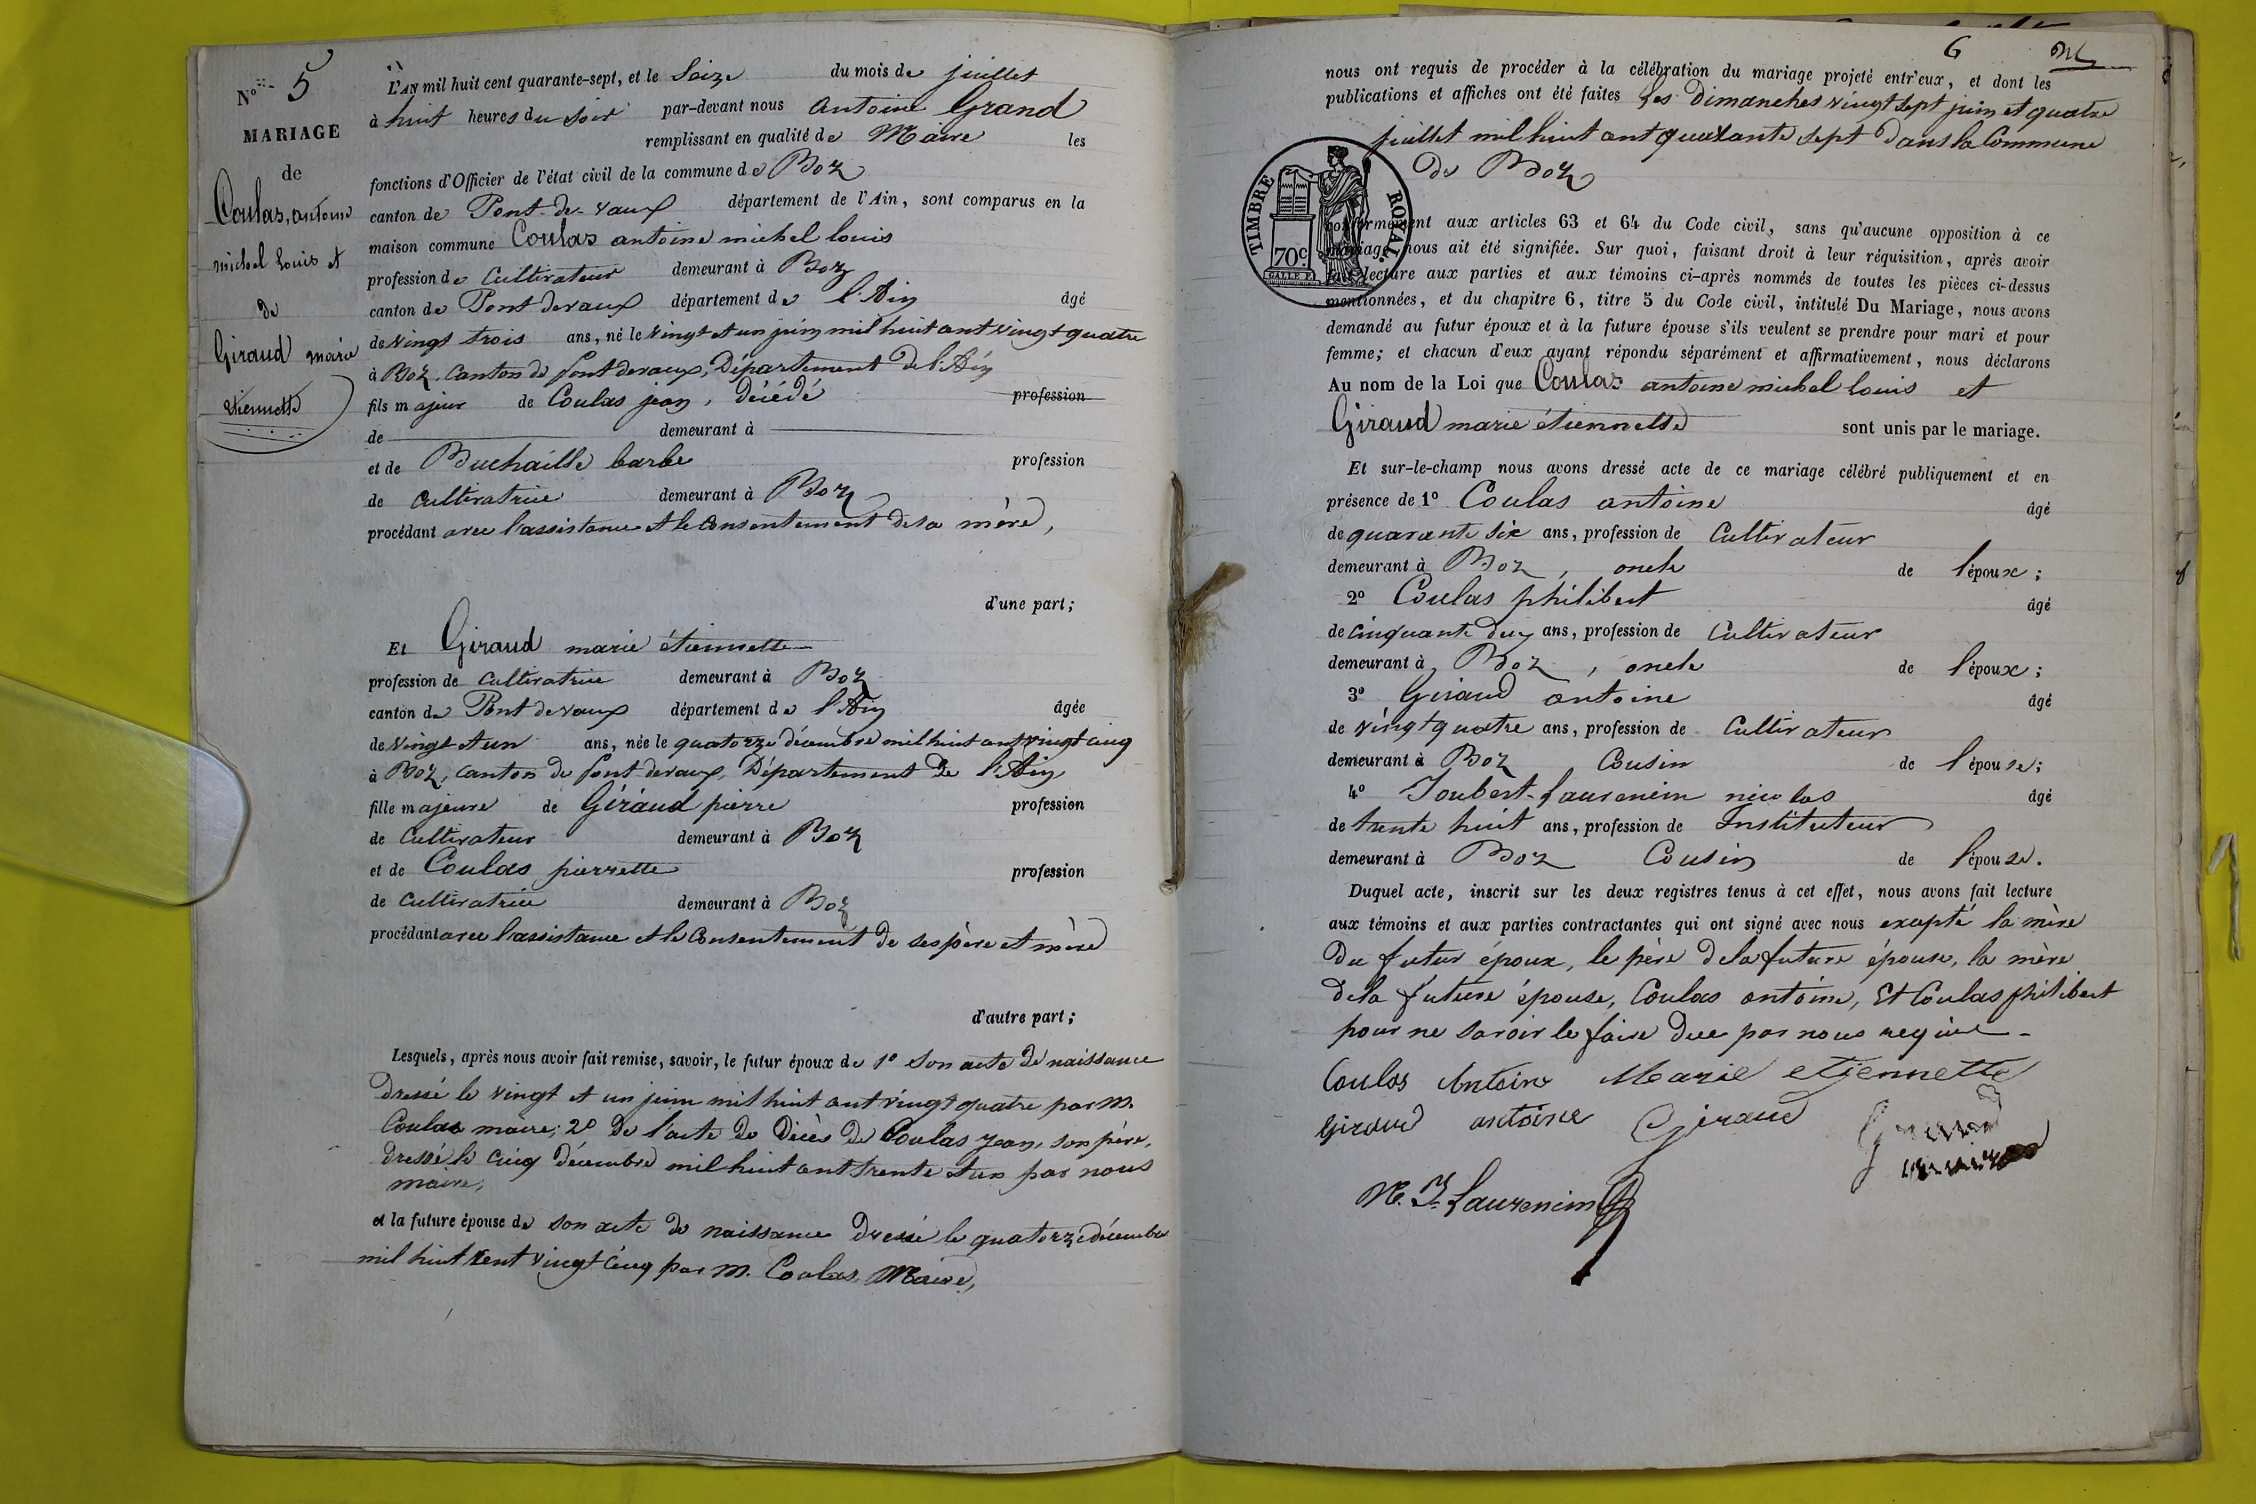 N° 5
MARIAGE
de
Coulas, antoine
michel louis et
de
Giraud marie
etiennette
L'AN mil huit cent quarante-sept, et le Seize du mois de juillet
à huit heures du soir par-devant nous Antoine Grand
remplissant en qualité de Maire les
fonctions d'Officier de l'état civil de la commune de Boz
canton de Pont-de-Vaux département de l'Ain, sont comparus en la
maison commune Coulas antoine michel louis
profession de Cultivateur demeurant à Boz
canton de Pont devaux département de l'Ain âgé
de vingt trois ans, né le vingt et un juin mil huit cent vingt quatre
à Boz, canton de pont devaux, Département de l'Ain
fils majeur de Coulas jean, décédé profession
de demeurant à
et de Buchaille barbe profession
de cultivatrice demeurant à Boz
procédant avec l'assistance et le consentement de sa mère,
d'une part;
Et Giraud marie étiennette
profession de cultivatrice demeurant à Boz
canton de Pont devaux département de l'Ain âgée
de vingt et un ans, née le quatorze décembre mil huit cent vingt cinq
à Boz, canton de pont devaux, Département de l'Ain
fille majeure de Giraud pierre profession
de Cultivateur demeurant à Boz
et de Coulas pierrette profession
de cultivatrice demeurant à Boz
procédant avec l'assistance et le consentement de ses père et mère
d'autre part;
Lesquels, après nous avoir fait remise, savoir, le futur époux de 1° son acte de naissance
dressé le vingt et un juin mil huit cent vingt quatre par M.
Coulas maire; 2° de l'acte de décès de Coulas jean, son père,
dressé le cinq décembre mil huit cent trente et un par nous
maire,
et la future épouse de son acte de naissance dressé le quatorze décembre
mil huit cent vingt cinq par M. Coulas Maire,
6
nous ont requis de procéder à la célébration du mariage projeté entr'eux, et dont les
publications et affiches ont été faites les Dimanches vingt sept juin et quatre
juillet mil huit cent quarante sept dans la Commune
de Boz
TIMBRE ROYAL
70c.
conformément aux articles 63 et 64 du Code civil, sans qu'aucune opposition à ce
mariage nous ait été signifiée. Sur quoi, faisant droit à leur réquisition, après avoir
fait lecture aux parties et aux témoins ci-après nommés de toutes les pièces ci-dessus
mentionnées, et du chapitre 6, titre 5 du Code civil, intitulé Du Mariage, nous avons
demandé au futur époux et à la future épouse s'ils veulent se prendre pour mari et pour
femme; et chacun d'eux ayant répondu séparément et affirmativement, nous déclarons
Au nom de la Loi que Coulas antoine michel louis et
Giraud marie étiennette sont unis par le mariage.
Et sur-le-champ nous avons dressé acte de ce mariage célébré publiquement et en
présence de 1° Coulas antoine âgé
de quarante six ans, profession de Cultivateur
demeurant à Boz, oncle de l'époux;
2° Coulas philibert âgé
de cinquante deux ans, profession de Cultivateur
demeurant à Boz, oncle de l'époux;
3° Giraud antoine âgé
de vingt quatre ans, profession de Cultivateur
demeurant à Boz Cousin de l'épouse;
4° Joubert-Laurencin nicolas âgé
de trente huit ans, profession de Instituteur
demeurant à Boz Cousin de l'épouse.
Duquel acte, inscrit sur les deux registres tenus à cet effet, nous avons fait lecture
aux témoins et aux parties contractantes qui ont signé avec nous excepté la mère
du futur époux, le père de la future épouse, la mère
de la future épouse, Coulas antoine, Et Coulas philibert
pour ne savoir le faire duee par nous requis
Coulas Antoine Marie etiennette
Giraud antoine Giraud Grand
N. J. Laurencin